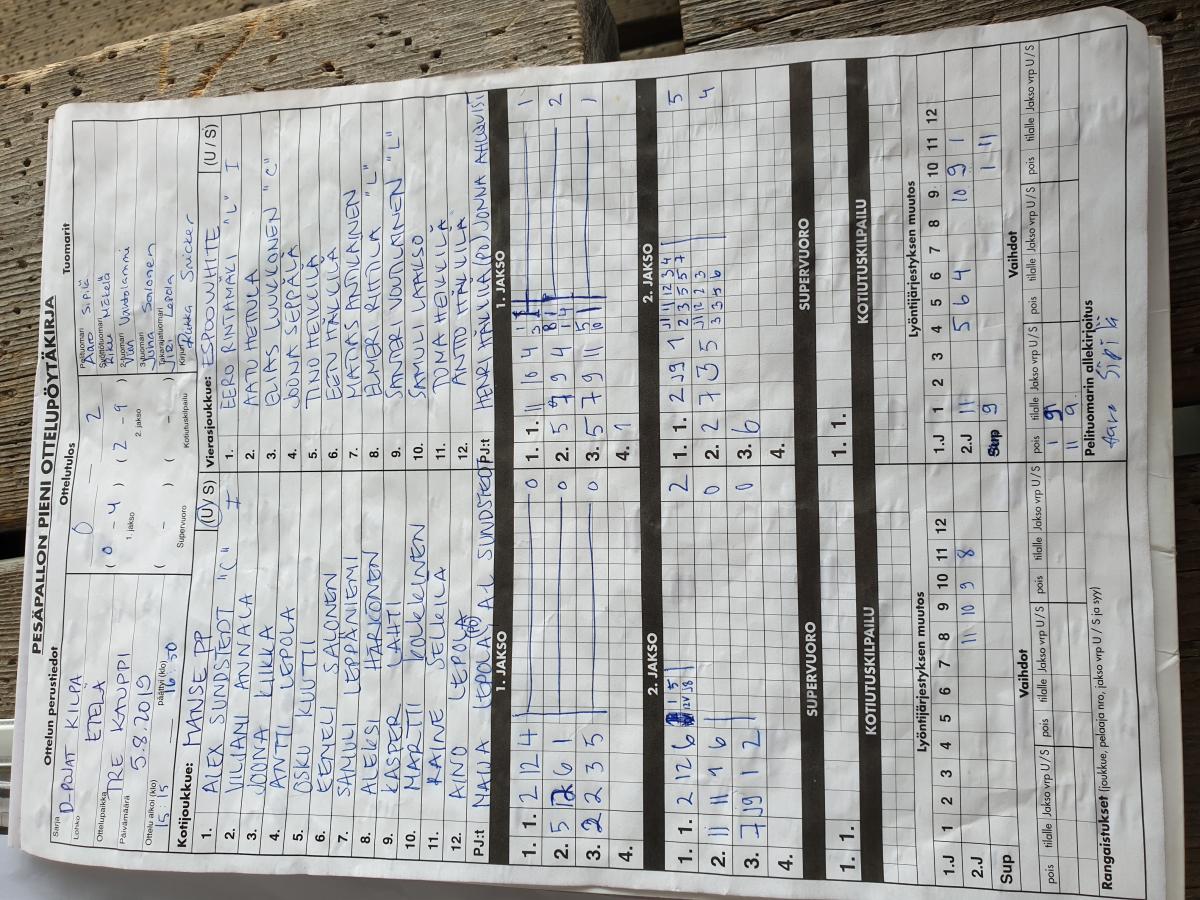 PESÄPALLON PIENI OTTELUPÖYTÄKIRJA
Ottelun perustiedot
Ottelutulos
Tuomarit
Sarja D-POJAT KILPA
Lohko ETELÄ
Ottelupaikka TRE KAUPPI
Päivämäärä 5.8.2019
Ottelu alkoi (klo) 15:15
päättyi (klo) 16 50
0 — 2
( 0 - 4 ) ( 2 - 9 )
1. jakso 2. jakso
( - ) ( - )
Supervuoro Kotiutuskilpailu
Pelituomari Aaro Sipilä
Syöttötuomari Mäkelä
2-tuoman
3-tuoman Juha Salonen
Takarajatuomari Lepola
Kirjuri Riikka Snicker
Kotijoukkue: MANSE PP (U/S)
1. ALEX SUNDSTEDT "C" I
2. VILJAMI ANNALA
3. JOONA KIIKKA
4. ANTTI LEPOLA
5. OSKU KUUTTI
6. EEMELI SALONEN
7. SAMULI LEPPÄNIEMI
8. ALEKSI HARKONEN
9. KASPER LAHTI
10. MARTTI KOLKKINEN
11. RAINE SELKILÄ
12. AINO LEPOLA
PJ:t MANU LEPOLA, AL SUNDSTEDT
Vierasjoukkue: ESPOOWHITE (U / S)
1. EERO RINTAMÄKI "L" I
2. AATU HETULA
3. ELIAS LUUKKONEN "C"
4. JOONA SEPPÄLÄ
5. TINO HEIKKILÄ
6. EEN TALKLLA
7. MATIAS ANTIKAINEN
8. ELMERI RIHTILÄ "L"
9. SANTERI VOUTILAINEN "L"
10. SAMULI LAAKSO
11. TUMA HEIKKILÄ
12. ANTTO HÄKLILÄ
PJ:t HENRI HÄKLILÄ (PJ) JONNA AHLQVIST
1. JAKSO
1. 1. 2 12 4 0
2. 5 12 6 1 0
3. 2 2 3 5 0
4.
1. JAKSO
1. 1. 11 10 4 1
2. 5 9 9 4 2
3. 5 7 9 11 1
4. 1
2. JAKSO
1. 1. 2 12 6 2
2. 11 11 1 6 0
3. 7 J9 1 2 0
4.
2. JAKSO
1. 1. 2 J9 1 5
2. 2 7 J3 5 4
3. 6
4.
SUPERVUORO
1. 1.
SUPERVUORO
1. 1.
KOTIUTUSKILPAILU
KOTIUTUSKILPAILU
Lyöntijärjestyksen muutos
1.J 1 2 3 4 5 6 7 8 9 10 11 12
2.J 11 10 9 8
Sup
Lyöntijärjestyksen muutos
1.J 1 2 3 4 5 6 7 8 9 10 11 12
2.J 11 5 6 4 10 9 1
Sup 9 1 11
Vaihdot
pois tilalle Jakso vrp U / S pois tilalle Jakso vrp U / S pois tilalle Jakso vrp U / S
Vaihdot
pois tilalle Jakso vrp U / S pois tilalle Jakso vrp U / S pois tilalle Jakso vrp U / S
1 9
11 9
Rangaistukset (joukkue, pelaaja nro, jakso vrp U / S ja syy)
Pelituomarin allekirjoitus
Aaro Sipilä